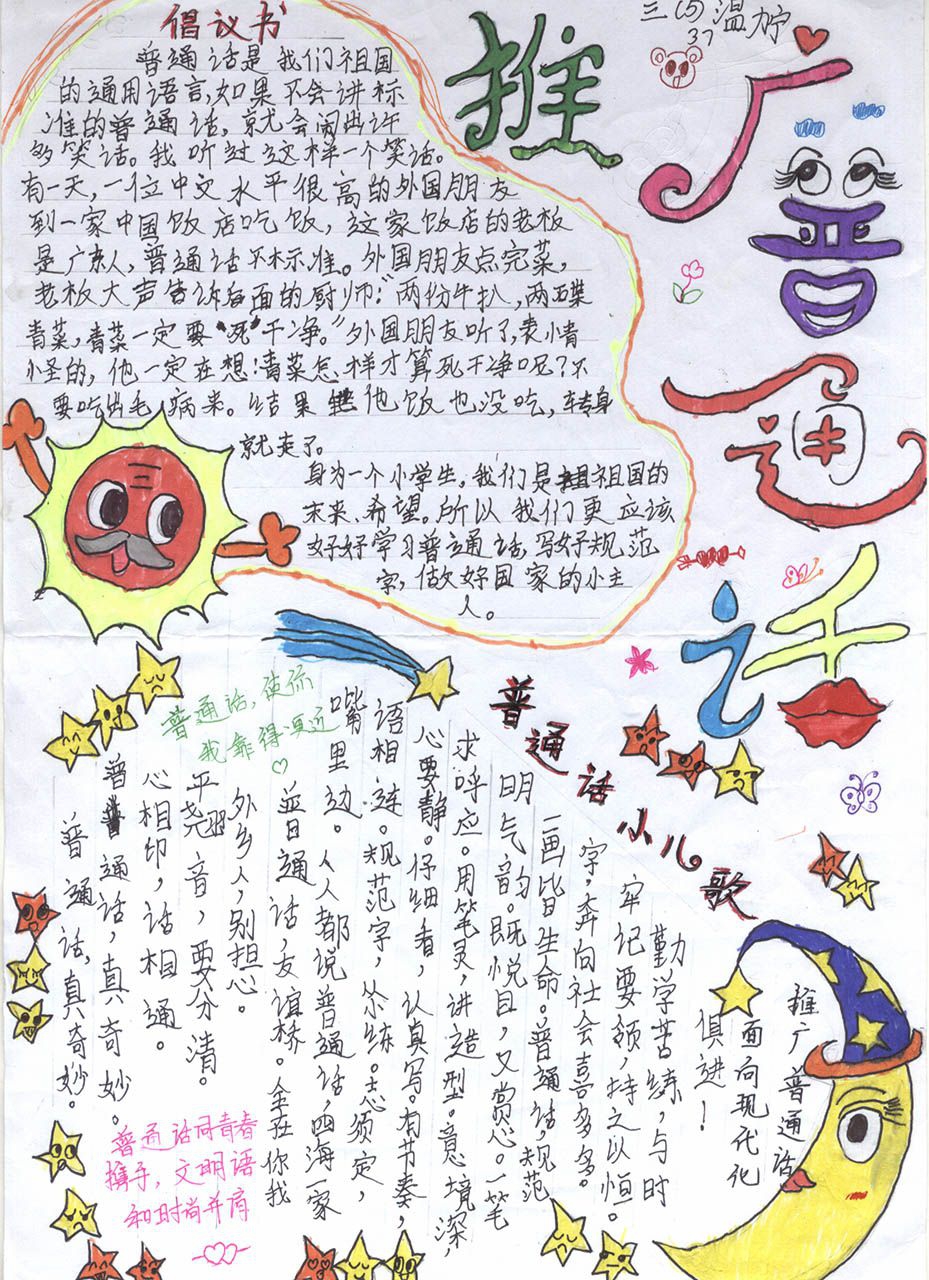 三(5)温佇
37
推广普通话
倡议书
普通话是我们祖国
的通用语言,如果不会讲标
准的普通话,就会闹出许
多笑话。我听过这样一个笑话。
有一天,一位中文水平很高的外国朋友
到一家中国饭店吃饭,这家饭店的老板
是广东人,普通话不标准。外国朋友点完菜,
老板大声告诉后面的厨师:“两份牛扒,两碟
青菜,青菜一定要“死”干净。”外国朋友听了,表小青
小圣的,他一定在想:青菜怎样才算死干净呢?不
要吃出毛病来。结果他饭也没吃,转身
就走了。
身为一个小学生,我们是祖国的
未来、希望。所以我们更应该
好好学习普通话,写好规范
字,做好国家的小主
人。
三
普通话,使你
我靠得更近
普通话小儿歌
普通话,真奇妙。
普通话,真奇妙。
心相印,话相通。
平翘音,要分清。
外乡人,别担心。
普通话,友谊桥。全在你我
嘴里边。人人都说普通话,四海一家
语相连。规范字,练。态须定,
心要静。仔细看,认真写。有节奏,
求呼应。用笔灵,讲造型。意境深,
明气韵。既悦目,又赏心。一笔
一画皆生命。普通话,规范
字,奔向社会喜多多。
牢记要领,持之以恒。
勤学苦练,与时
俱进!
推广普通话
面向现代化
普通话同青春
携手,文明语
和时尚并肩